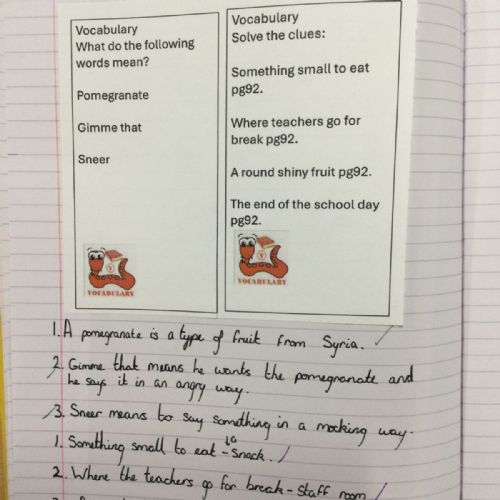 Vocabulary
What do the following
words mean?
Pomegranate
Gimme that
Sneer
VOCABULARY
Vocabulary
Solve the clues:
Something small to eat
pg92.
Where teachers go for
break pg92.
A round shiny fruit pg92.
The end of the school day
pg92.
VOCABULARY
1. A pomegranate is a type of fruit from Syria.
2. Gimme that means he wants the pomegranate and
he says it in an angry way.
3. Sneer means to say something in a mocking way.
1. Something small to eat - Snack.
2. Where the teachers go for break - Staff room